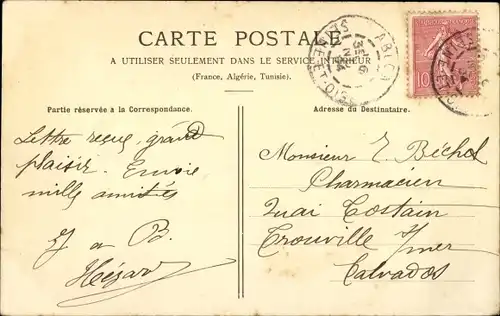 CARTE POSTALE
A UTILISER SEULEMENT DANS LE SERVICE INTÉRIEUR
(France, Algérie, Tunisie).
Partie réservée à la Correspondance.
Adresse du Destinataire.
Lettre reçue, grand
plaisir. Envoie
mille amitiés
B.
Monsieur E. Béchel
Pharmacien
Quai Costain
Trouville s/mer
Calvados
10